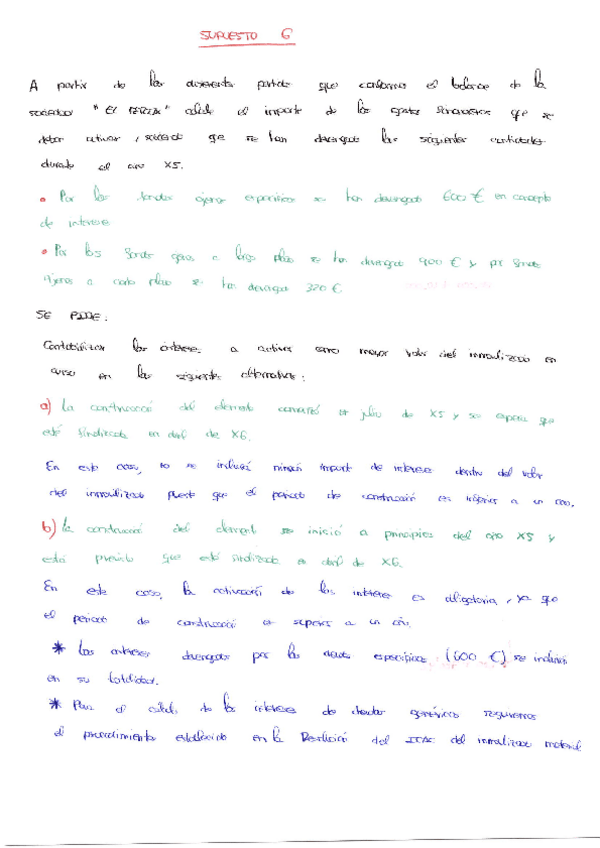 SUPUESTO 6
A partir de las diferentes partidas que conforman el balance de la
sociedad calcule el importe de los gastos financieros que se
deben activar, sabiendo que se han devengado las siguientes cantidades
durante el año X5.
• Por las deudas ajenas específicas se han devengado 600 € en concepto
de intereses
• Por los fondos ajenos a largo plazo se han devengado 900 € y por fondos
ajenos a corto plazo se han devengado 320 €
SE PIDE:
Contabilizar los intereses a activar como mayor valor del inmovilizado en
curso en las siguientes alternativas:
a) La construcción del elemento comenzó en julio de X5 y se espera que
esté finalizada en abril de X6.
En este caso, no se incluirá ningún importe de intereses dentro del valor
del inmovilizado puesto que el periodo de construcción es inferior a un año.
b) La construcción del elemento se inició a principios del año X5 y
está previsto que esté finalizada en abril de X6.
En este caso, la activación de los intereses es obligatoria, ya que
el periodo de construcción es superior a un año.
* Los intereses devengados por las deudas específicas (600 €) se incluirán
en su totalidad.
* Para el cálculo de los intereses de deudas genéricas seguiremos
el procedimiento establecido en la Resolución del ICAC del inmovilizado material